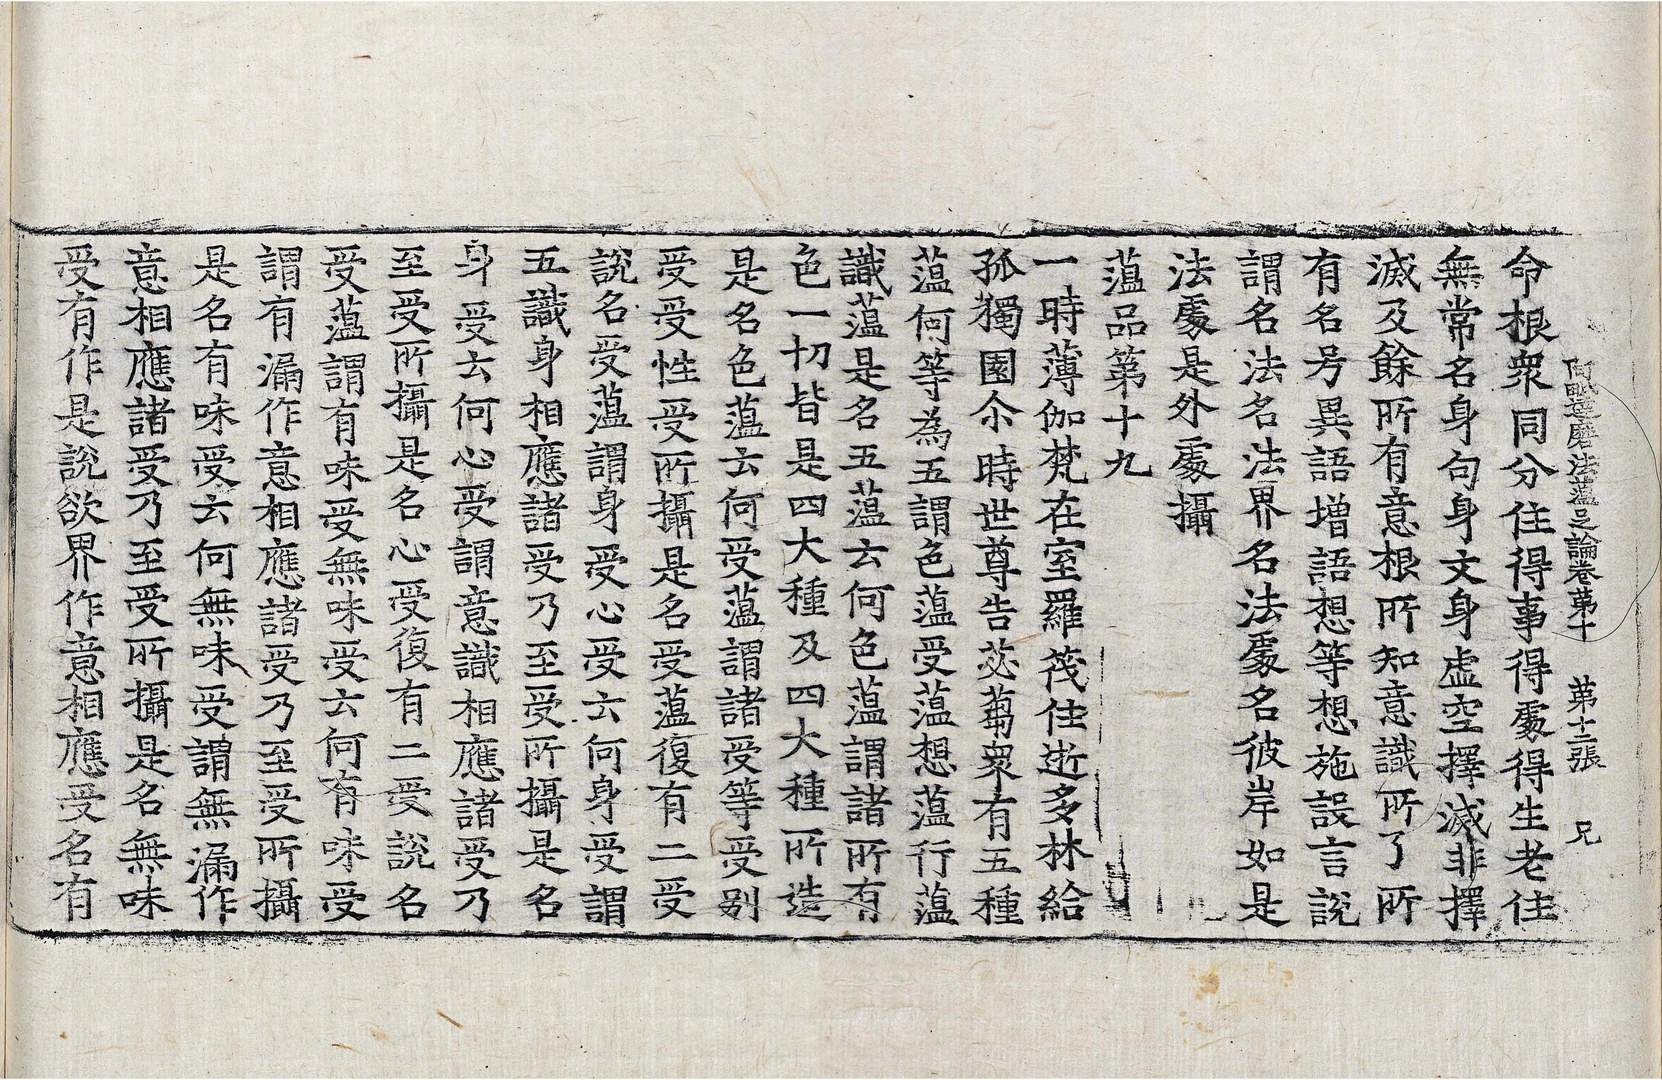 阿毗達磨法蘊足論卷第十 第十二張 兄
命根衆同分住得事得處得生老住
無常名身句身文身虛空擇滅非擇
滅及餘所有意根所知意識所了所
有名号異語增語想等想施設言說
謂名法名法界名法處名彼岸如是
法處是外處攝
蘊品第十九
一時薄伽梵在室羅筏住逝多林給
孤獨園尒時世尊告苾蒭衆有五種
蘊何等為五謂色蘊受蘊想蘊行蘊
識蘊是名五蘊云何色蘊謂諸所有
色一切皆是四大種及四大種所造
是名色蘊云何受蘊謂諸受等受別
受受性受所攝是名受蘊復有二受
說名受蘊謂身受心受云何身受謂
五識身相應諸受乃至受所攝是名
身受云何心受謂意識相應諸受乃
至受所攝是名心受復有二受說名
受蘊謂有味受無味受云何有味受
謂有漏作意相應諸受乃至受所攝
是名有味受云何無味受謂無漏作
意相應諸受乃至受所攝是名無味
受有作是說欲界作意相應受名有